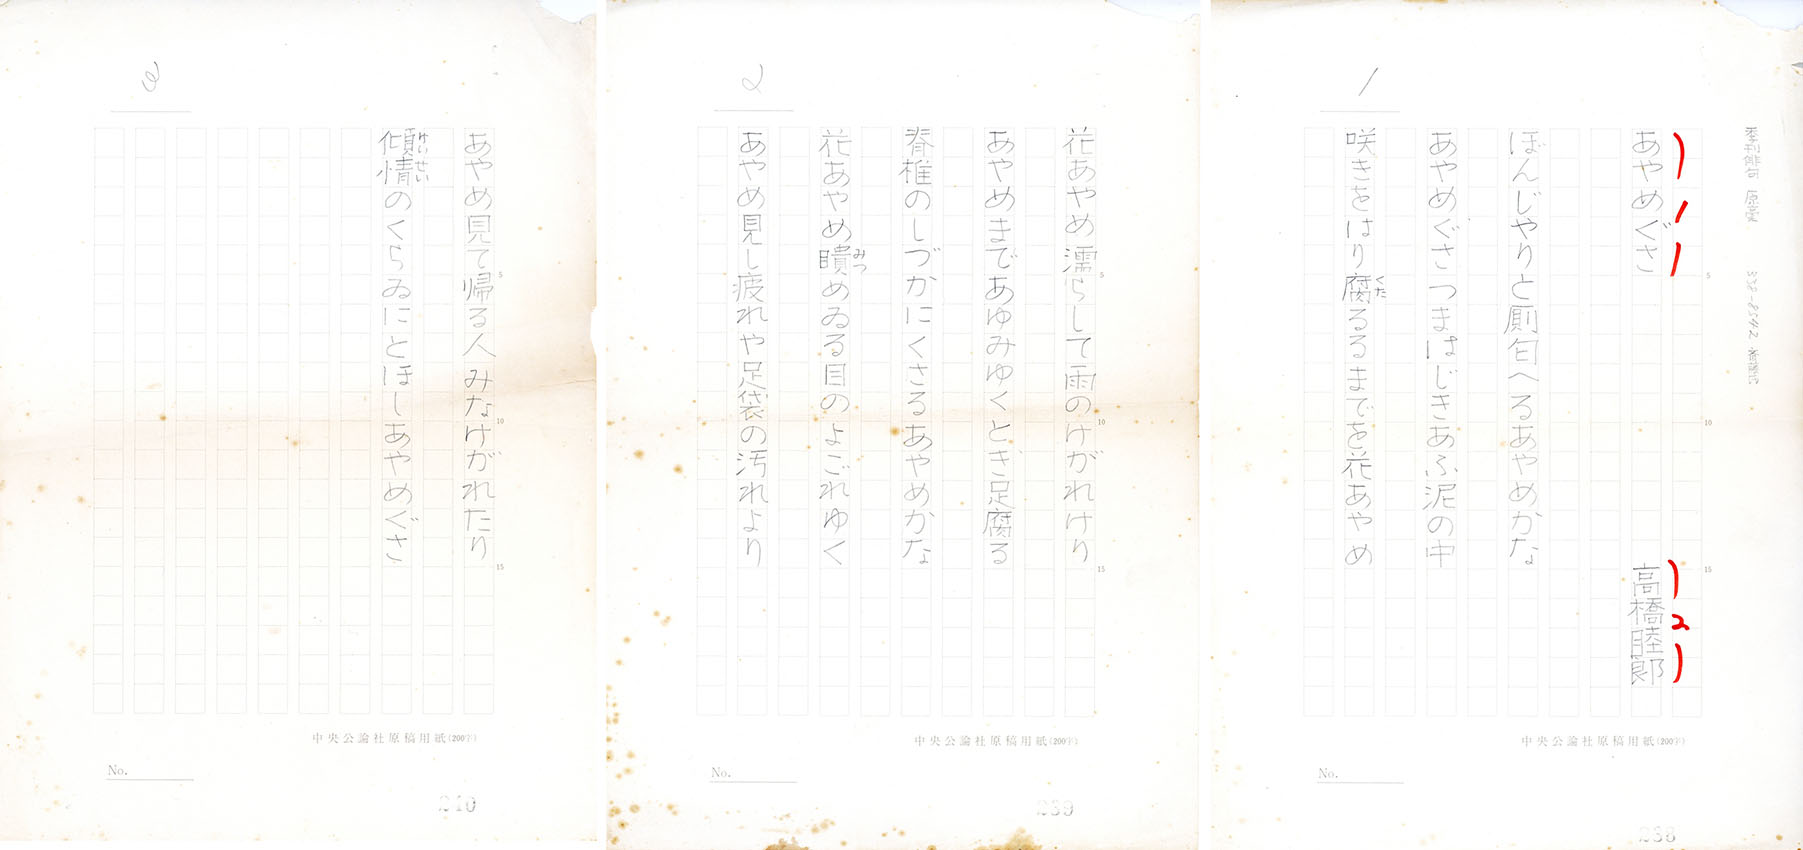 1
季刊俳句 原稾
あやめぐさ
高橋睦郎
ぼんじやりと厠匂へるあやめかな
あやめぐさつまはじきあふ泥の中
咲きをはり腐るるまでを花あやめ
くた
5
10
15
中央公論社原稿用紙(200字)
No.
238
2
花あやめ濡らして雨のけがれけり
あやめまであゆみゆくとき足腐る
脊椎のしづかにくさるあやめかな
花あやめ瞶めゐる目のよごれゆく
みつ
あやめ見し疲れや足袋の汚れより
5
10
15
中央公論社原稿用紙(200字)
No.
239
3
あやめ見て帰る人みなけがれたり
傾情のくらゐにとほしあやめぐさ
けいせい
5
10
15
中央公論社原稿用紙(200字)
No.
240